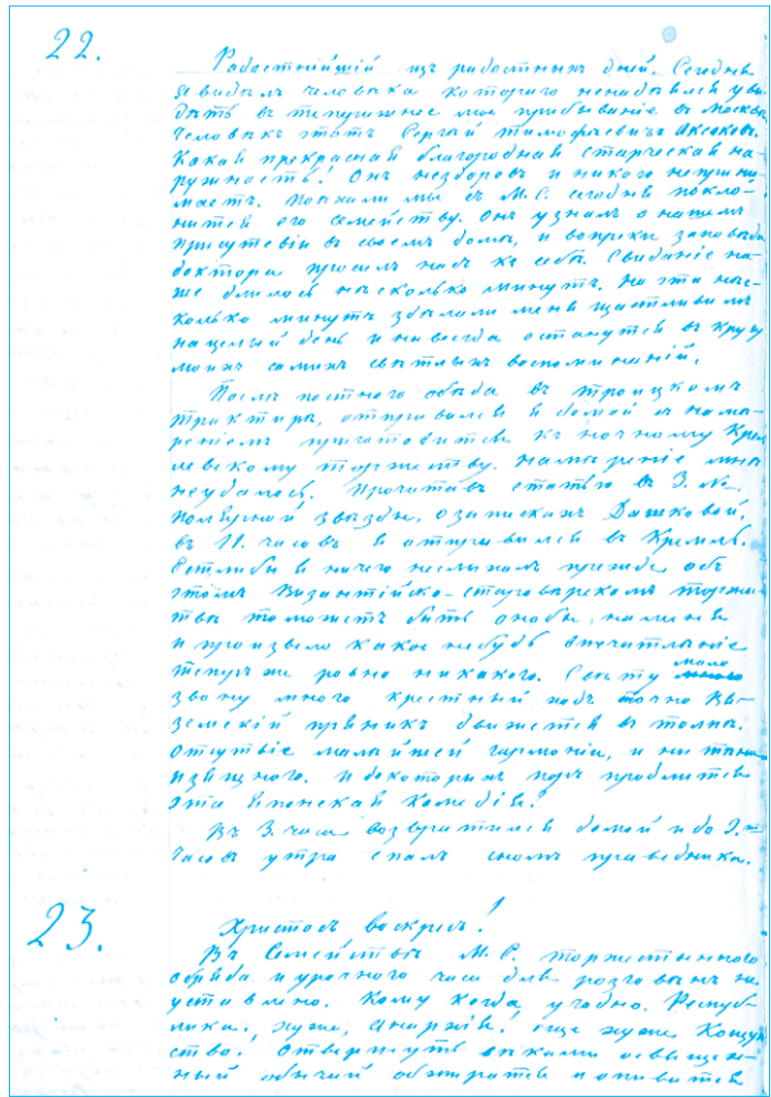 22.
Радостнѣйшій изъ радостныхъ дней. Сегодня
я видѣлъ человѣка которого ненадѣялся уви-
дѣть въ теперишнее мое прибываніе въ Москвѣ.
Человѣкъ этотъ Сергѣй Тимофѣевичъ Аксаковъ.
Какая прекрасная благородная старческая на-
ружность! Онъ нездоровъ и никого неприни-
маетъ. Поѣхали мы съ М. С. сегодня покло-
нится его семейству. Онъ узналъ о нашемъ
присутствіи въ своемъ домѣ, и вопреки заповѣди
доктора просилъ насъ къ себѣ. Свиданіе на-
ше длилось нѣсколько минутъ. Но эти нѣс-
колько минутъ здѣлали меня щастливимъ
нацелый день и навсегда останутся въ кругу
моихъ самихъ свѣтлыхъ воспоминаній.
Послѣ постного обѣда въ троицкомъ
трактирѣ, отправился я домой съ намѣ-
реніемъ приготовится къ ночному Крем
левскому торжеству. Намѣреніе мнѣ
неудалось. Прочитавъ статью въ 3. №.
полярной звѣзды, озапискахъ Дашковой,
въ 11. часовъ я отправился въ Кремль.
Естлибы я ничего неслыхалъ прежде объ
этомъ Византійско-староверскомъ торжес
твѣ то можетъ быть онобы, наменя
и произвело какое нибудь впечатлѣніе
теперь же ровно никакого. Свѣту мало
звону много крестный ходъ точно Вя-
земскій пряникъ движется въ толпѣ.
Отсутвіе малѣйшей гармоніи, и ни тѣни
изящного. И докоторыхъ поръ продлится
эта японская комедія?
Въ 3. часа возвратился домой и до 9.ти
часовъ утра спалъ сномъ праведника.
23.
Христосъ воскресъ!
Въ Семействѣ М. С. торжественного
обряда и урочного часа для розговѣнъ не
уставлено. Кому когда угодно. Респуб-
лика. Хуже, анархія! еще хуже Кощун
ство! Отвергнуть вѣками освящен-
ный обычай обжиратся и опиватся